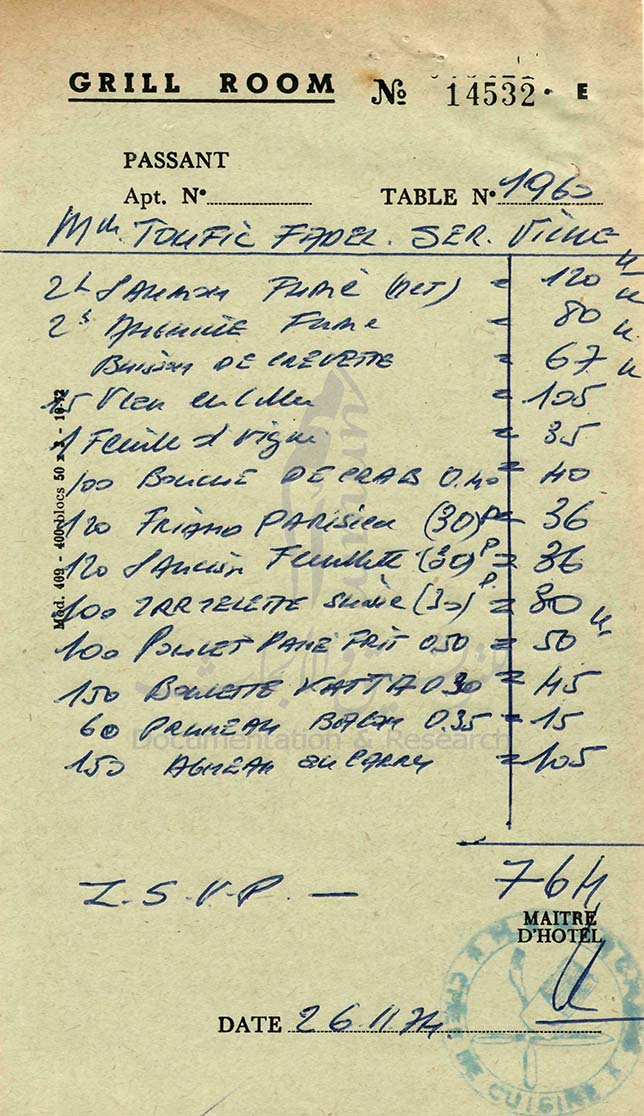 GRILL ROOM No 14532 E
PASSANT
Apt. N° TABLE N° 1960
TOUFIC FADEL. SER. VILLE
SAUMON FUMÉ = 120
FUMÉ = 80
DE CREVETTE = 67
15 = 105
1 Feuille d vigne = 35
100 BOUCHÉ DE CRAB 0.40 = 40
120 FRIAND PARISIEN (30)P = 36
120 (30)P = 36
100 (30)P = 30
100 POULET PANÉ FRIT 0.50 = 50
150 BOULETTE KAFTA 0.30 = 45
60 PRUNEAU BACON 0.35 = 15
150 AGNEAU au CARRY = 105
Mod. 409 - 400 blocs 50 x 3 -
Documentation & Research
764
MAITRE
D'HOTEL
DATE 26.11.74
CHEF DE CUISINE